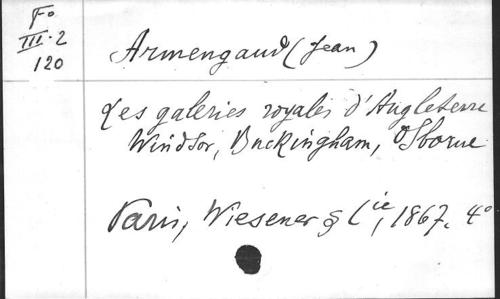 Fo
III.2
120
Armengaud (Jean)
Les galeries royales d'Angleterre
Windsor, Buckingham, Osborne
Paris, Wiesener & Cie, 1867. 4o